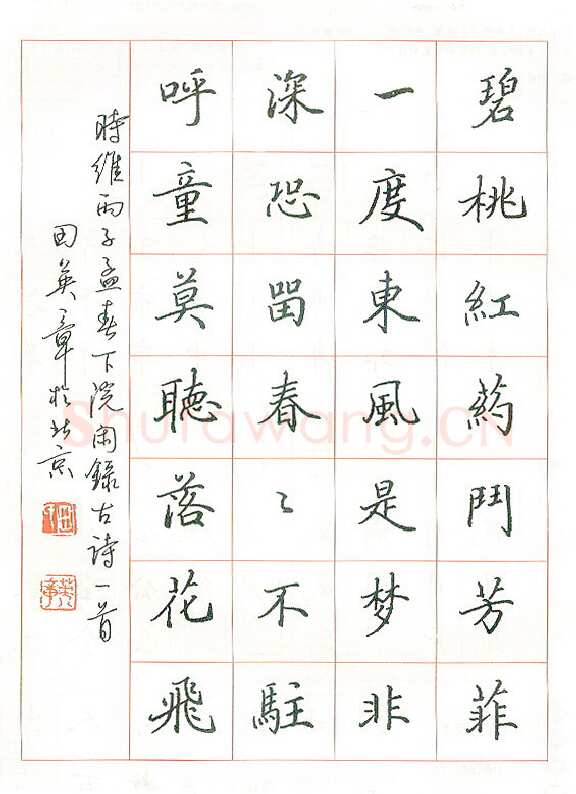 碧桃紅葯鬥芳菲
一度東風是梦非
深恐留春〻不駐
呼童莫聽落花飛
時維丙子孟春下浣閑錄古詩一首
田英章於北京
Shufawang.CN